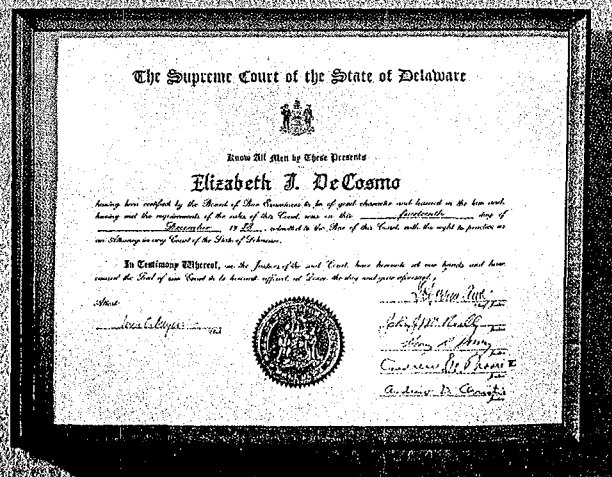 The Supreme Court of the State of Delaware
Know All Men by These Presents
Elizabeth J. DeCosmo
having been certified by the Board of Bar Examiners to be of good character and learned in the law and
having met the requirements of the rules of this Court, was on this fourteenth day of
December 19 admitted to the Bar of this Court, with the right to practice as
an Attorney in any Court of the State of Delaware.
In Testimony Whereof, we the Justices of the said Court, have hereunto set our hands and have
caused the Seal of said Court to be hereunto affixed, at Dover, the day and year aforesaid.
Attest: